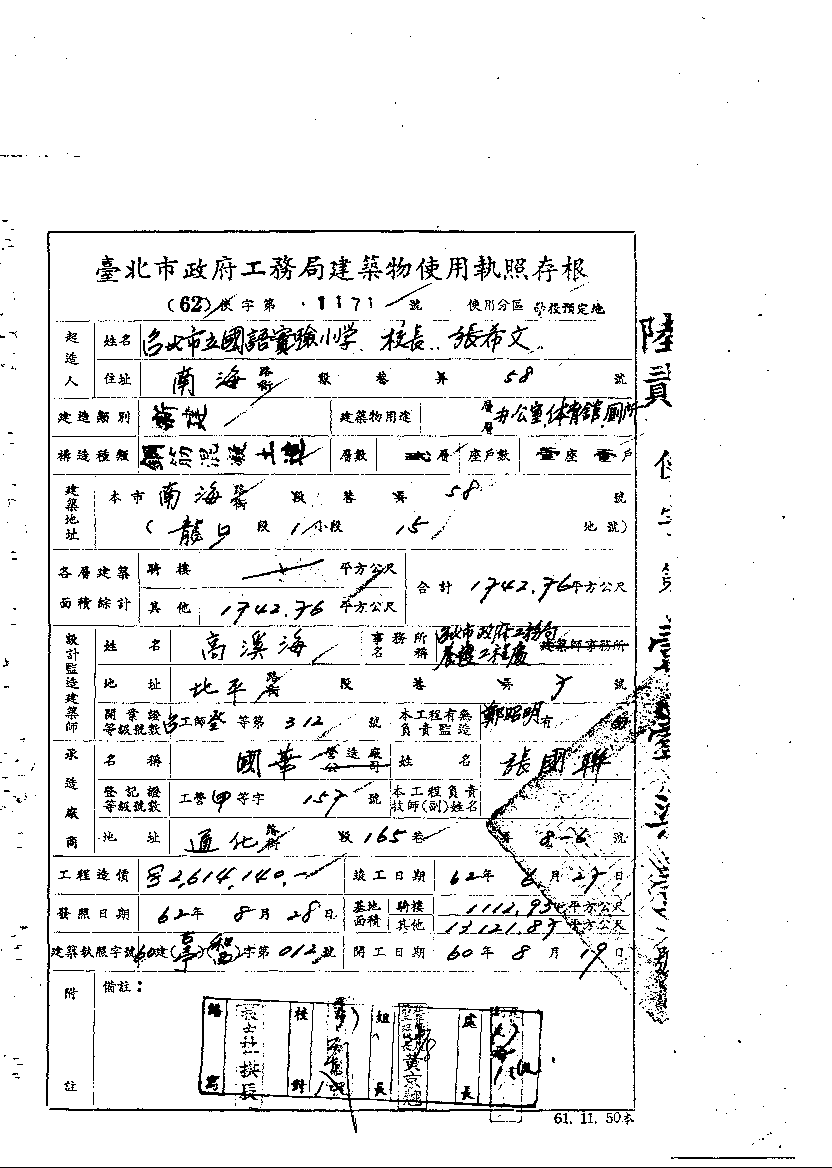 臺北市政府工務局建築物使用執照存根
(62)使字第 1171 號 使用分區 學校預定地
起造人 姓名 台北市立國語實驗小学 校長 張希文
住址 南海路街 段 巷 弄 58 號
建造類別 新建 建築物用途 層層 办公室体育館厠所
構造種類 鋼筋混凝土造 層數 貳層 座戶數 壹座 壹戶
建築地址 本市 南海路街 段 巷 弄 58 號
(龍口段 1 小段 15 地號)
各層建築面積綜計 騎樓 平方公尺 合計 1742.76平方公尺
其他 1742.76 平方公尺
設計監造建築師 姓名 高溪海 事務所名稱 台北市政府工務局養護工程處 建築師事務所
地址 北平路街 段 巷 弄 7 號
開業證等級號數 台工師登 等第 312 號 本工程有無負責監造 鄭昭明 有
承造廠商 名稱 國華 營造廠公司 姓名 張國聯
登記證等級號數 工營甲等字 157 號 本工程負責技師(副)姓名
地址 通化路街 段 165 巷 弄 8-6 號
工程造價 2,614,140.- 竣工日期 62年 6月 27日
發照日期 62年 8月 28日 基地面積 騎樓 1112.93平方公尺
其他 13,121.87平方公尺
建築執照字號 60建( )( )字第012號 開工日期 60年 8月 19日
附註 備註:
繕寫 校對 組長 處長
黃京
61. 11. 50本
陸貳 使字第壹壹